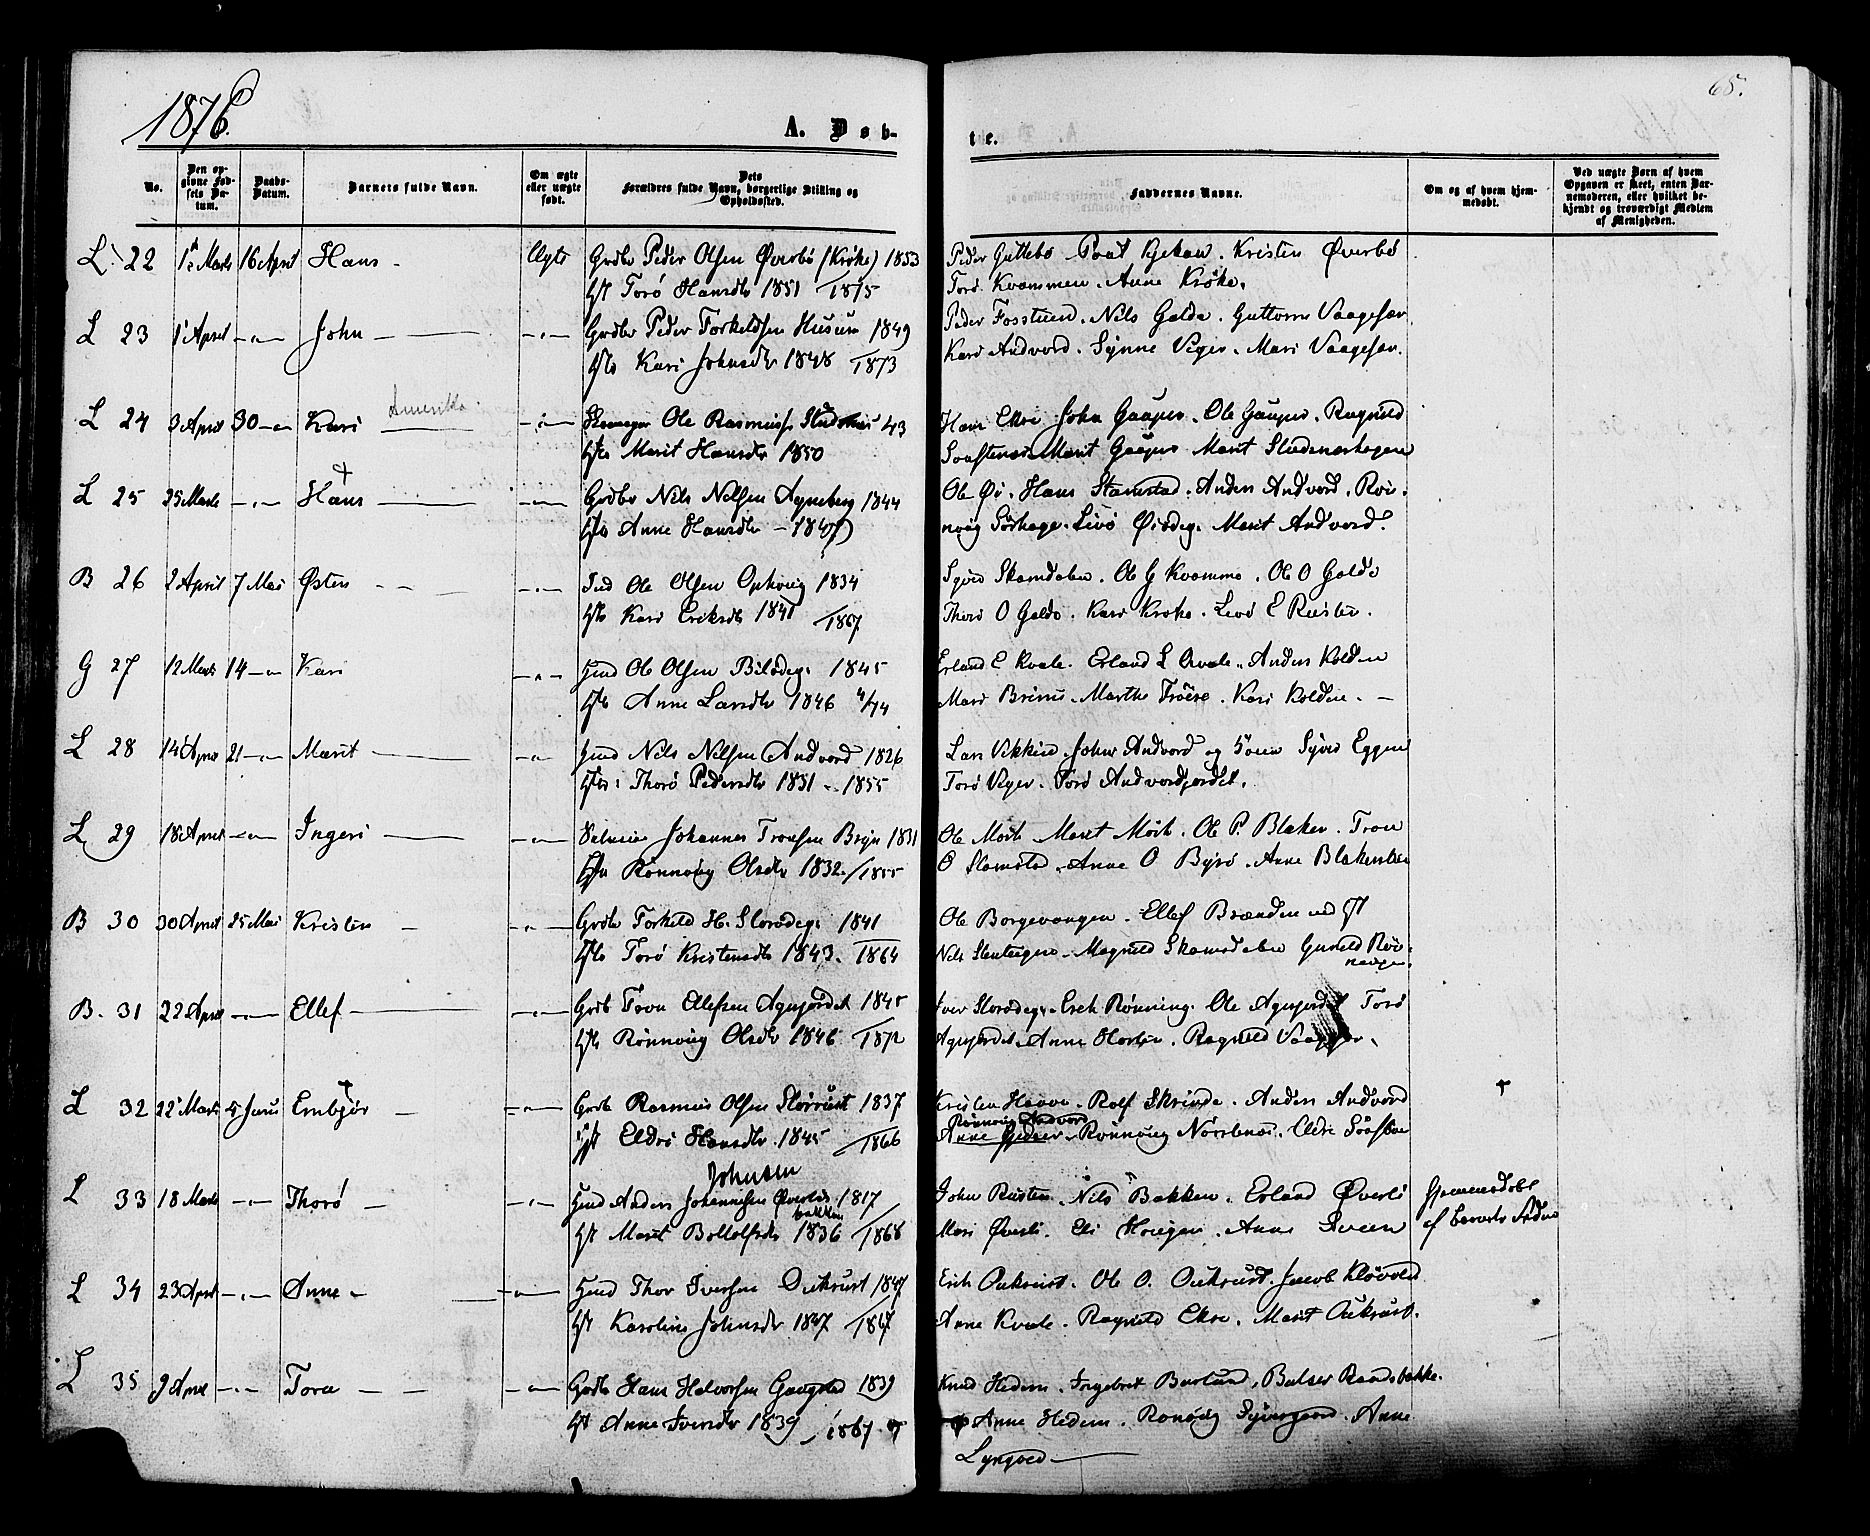 1876.
A. Døb-
te.
65.
No.
Den op-
givne Fød-
sels Da-
tum.
Daabs-
Datum.
Barnets fulde Navn.
Om ægte
eller uægte
født.
Dets
Forældres fulde Navn, borgerlige Stilling og
Opholdssted.
Faddernes Navne.
Om og af hvem hjem-
medøbt.
Ved uægte Børn af hvem
Opgaven er skeet, enten Bar-
nemoderen, eller hvilket be-
kjendt og troværdigt Medlem
af Menigheden.
L. 22 1 Marts 16 April Hans - Ægte Grdbr Peder Olsen Øverbø (Krøke) 1853
Hst Torø Hansdtr 1851 /1875
Peder Guttebø Kristen Øverbø
Tord Kvammen. Anne Krøke.
L 23 1 April -"- John -"- Grdbr Peder Torkeldsen Husum 1849
Hst Kari Johnsdtr 1848 /1873
Peder Fosstuen. Nils Galde. Guttorm Vaagesar
Kari Andvord. Synne Viger. Mari Vaagesar.
L 24 3 April 30 -"- Kari Amerika -"- Ole Rasmuss. 43
Hst Marit Hansdtr 1850
Hans Ekre John Gaaper. Ole Gaaper. Ragnild
Marit Gaaper Marit
L 25 25 Marts -"- Hans † -"- Grdbr Nils Nilsen Agneberg 1844
Hst Anne Hansdtr - 1847
Ole Øi. Hans Stamstad. Anders Andvord. Røn-
nøug Sørhage. Livø Øiødeg. Marit Andvord.
B 26 2 April 7 Mai Østen -"- Ind Ole Olsen Opkvig 1834
Hst Kari Eriksdtr 1841 /1867
Syver Skamsdalen. Ole G Kvamme. Ole O Galde
Thora O Galde. Kari Krøke. Livø E Rusten.
G 27 12 Marts 14 -"- Kari -"- Hmd Ole Olsen Bilødeg. 1845
Hst Anne Larsdtr 1846 4/74
Erland E Kvale. Erland L Kvale. Anders Kolden
Mari Brimi. Marthe Frøise. Kari Kolden. -
L 28 14 April 21 -"- Marit -"- Hmd Nils Nilsen Andvord 1826
Hst Thorø Pedersdtr 1831 - 1855
Lars Vikkin. John Andvord og Søren Syver Eggen
Torø Viger. Torø Andvordjordet.
L 29 18 April -"- Ingeri -"- Johannes Tronsen Bryn 1831
Hst Rønnøug Olsdtr 1832 /1855
Ole Mork Marit Mork. Ole P. Blaker. Tron
O Slamstad. Anne O Byrø. Anne Blakerstuen
B 30 30 April 25 Mai Kristen - -"- Grdbr Torkeld H. Slorødeg. 1841
Hst Torø Kristensdtr 1843. 1864
Ole Borgevangen. Ellef Brænden med Hst
Nils Stenteigen. Magnild Skamsdalen Gunild Røi-
nevgen.
B. 31 22 April -"- Ellef -"- Grdb Tron Ellefsen Agnjordet 1845
Hst Rønnøug Olsdtr 1846 /1872
Iver Slorødeg. Erik Rønning. Ole Agnjordet Torø
Agnjordet. Anne Horten. Ragnild Vaagesar.
L 32 22 Marts 5 Juni Embjør † -"- Grdb Rasmus Olsen Storrust 1837
Hst Eldri Hansdtr 1845 /1866
Kristen Haave. Rolf Skrinde. Anders Andvord
Rønnøug Andvord
Anne Gjeiver. Rønnøug Nørstenæs. Eldre Sørstuen
†
L 33 18 Marts -"- Thorø -"- Hmd Anders Johannesen Øverlie 1817
Johnsen
bakken
Hst Marit Botholfsdtr 1836 /1868
John Rusten. Nils Bakken. Erland Øverli
Mari Øverli. Eli Haugen. Anne Sveen
Hjemmedøbt
af
L 34 23 April -"- Anne - -"- Hmd Thor Iversen Aukrust 1847
Hst Karoline Johnsdtr 1847 /1867
Erik Aukrust. Ole O. Aukrust. Jacob Kløvold
Anne Kvale. Ragnild Ekre. Marit Aukrust.
L 35 9 April -"- Tora -"- Grdb Hans Halvorsen Gaugstad 1839
Hst Anne Iversdtr 1839 /1867
Knud Hedem. Ingebret Burlund, Balser Raadsbakke.
Anne Hedem. Rønøug Syvergaard. Anne
Lyngved